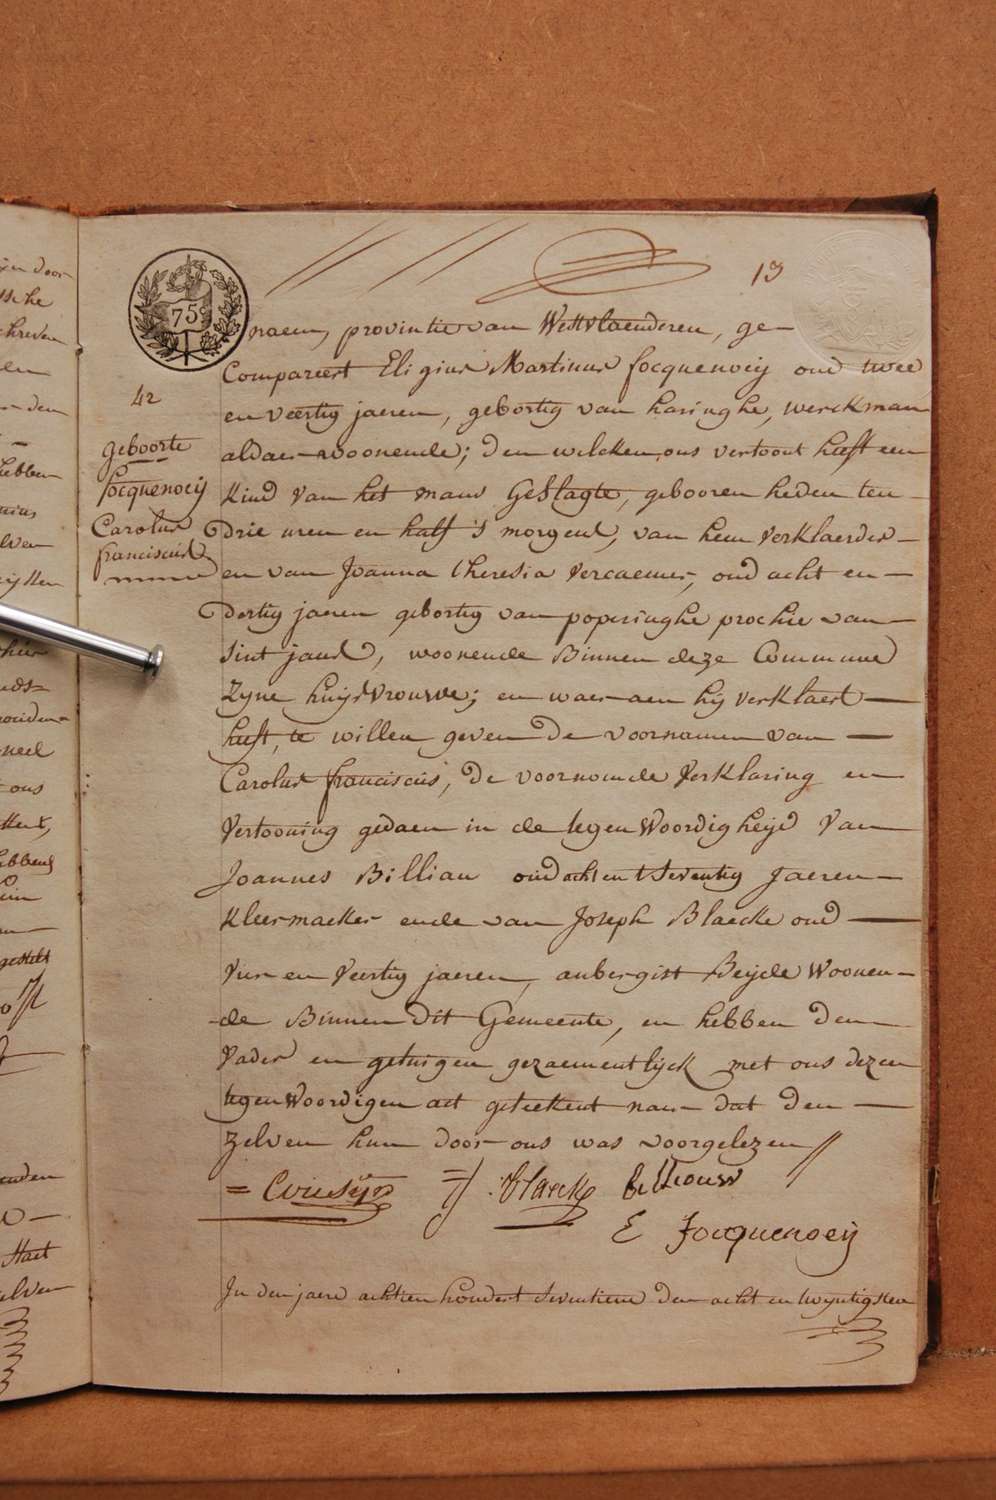 13
75
naem, provintie van Westvlaenderen, ge-
Compareert Eligius Martinus focquenoeij oud twee
en veertig jaeren, gebortig van haringhe, werckman
aldaer woonende; den welcken ons vertoont heeft een
Kind van het mans Geslagte, gebooren heden ten
drie uren en half 's morgens, van hem verklaerder-
en van Joanna theresia vercaemer, oud acht en-
dertig jaeren gebortig van poperinghe prochie van-
sint jans, woonende Binnen deze Commune
Zyne huysvrouwe; en waer aen hij verklaert-
heeft, te willen geven de voornamen van-
Carolus franciscus, de voornoemde verklaring en
vertooning gedaen in de tegenwoordigheijd van
Joannes Billiau oud acht en tseventig Jaeren-
Kleermaeker ende van Joseph Blaecke oud-
vier en veertig jaeren, aubergist Beijde woonen-
-de Binnen dit Gemeente, en hebben den
vader en getuigen gezaementlijck met ons dezen
tegenwoordigen act geteekent naer dat den-
zelven hun door ons was voorgelezen //
42
geboorte
focquenoeij
Carolus
franciscus
= = Blaecke billiouw
E Focquenoeij
In den jaere achtien hondert seventiene den acht en twyntigsten